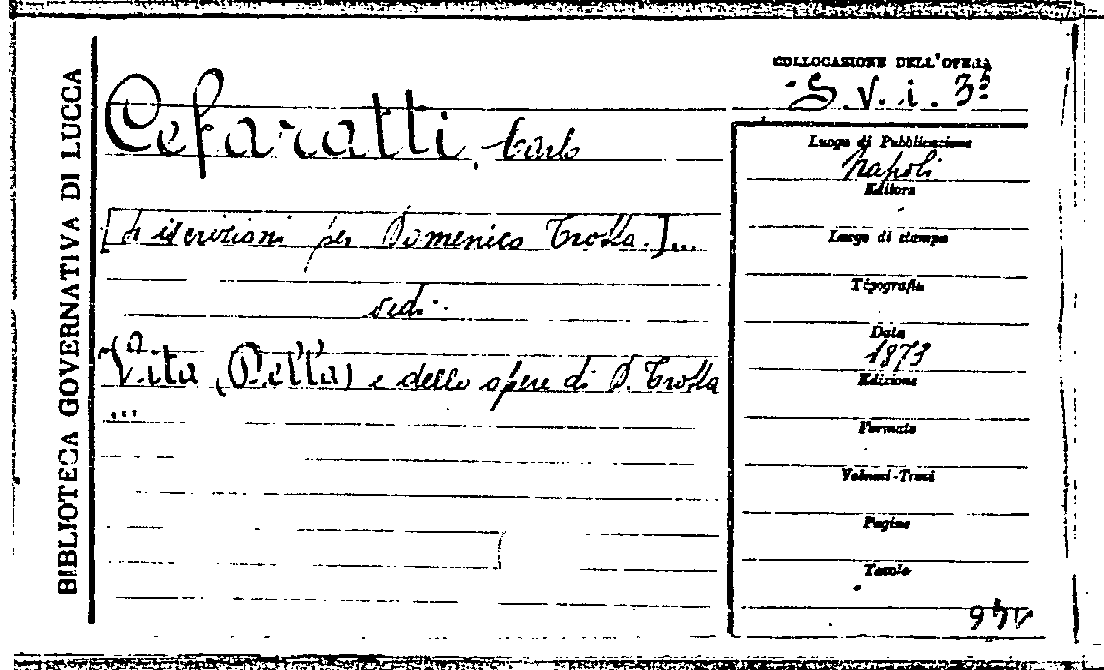 BIBLIOTECA GOVERNATIVA DI LUCCA
COLLOCAZIONE DELL'OPERA
S. V. i. 3
Cefaratti, Carlo
[ iscrizioni per Domenico Trotta.]...
vedi:
Vita (Della) e delle opere di D. Trotta
...
Luogo di Pubblicazione
Napoli
Editore
Luogo di stampa
Tipografia
Data
1873
Edizione
Formato
Volumi-Tomi
Pagine
Tavole